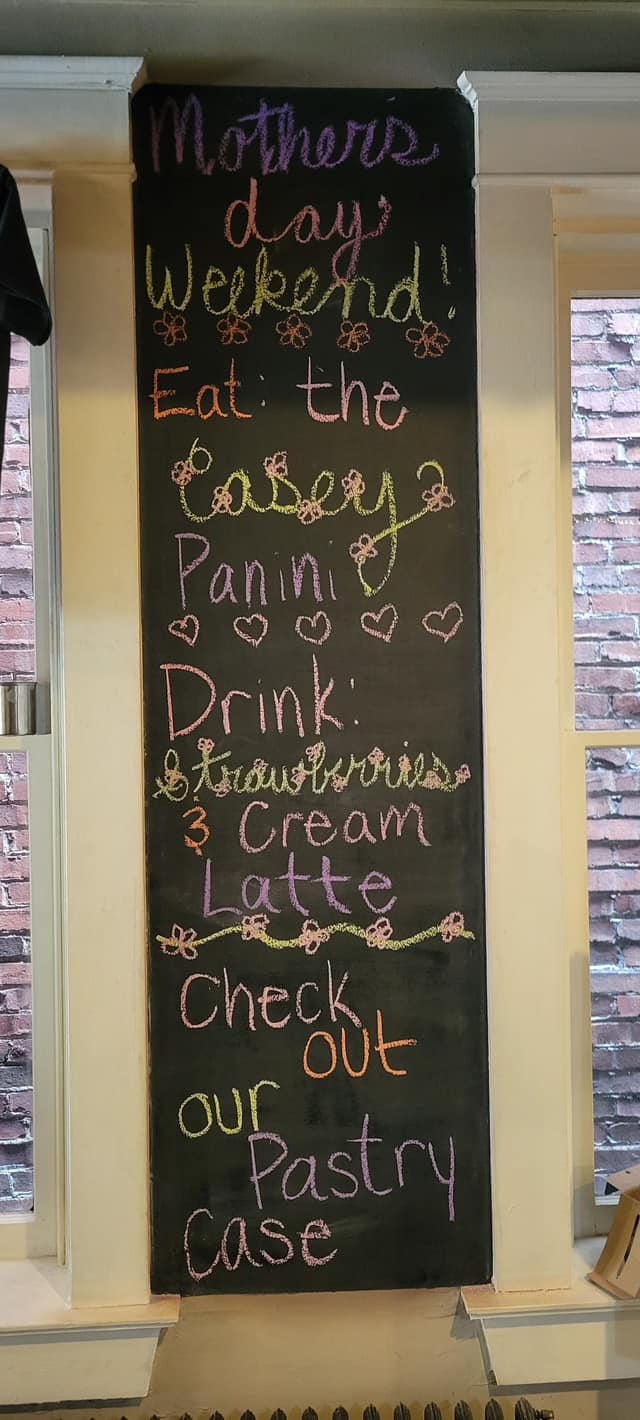 Mother's
day
Weekend!
Eat: the
Casey
Panini
Drink:
Strawberries
& Cream
Latte
Check
out
our
Pastry
Case